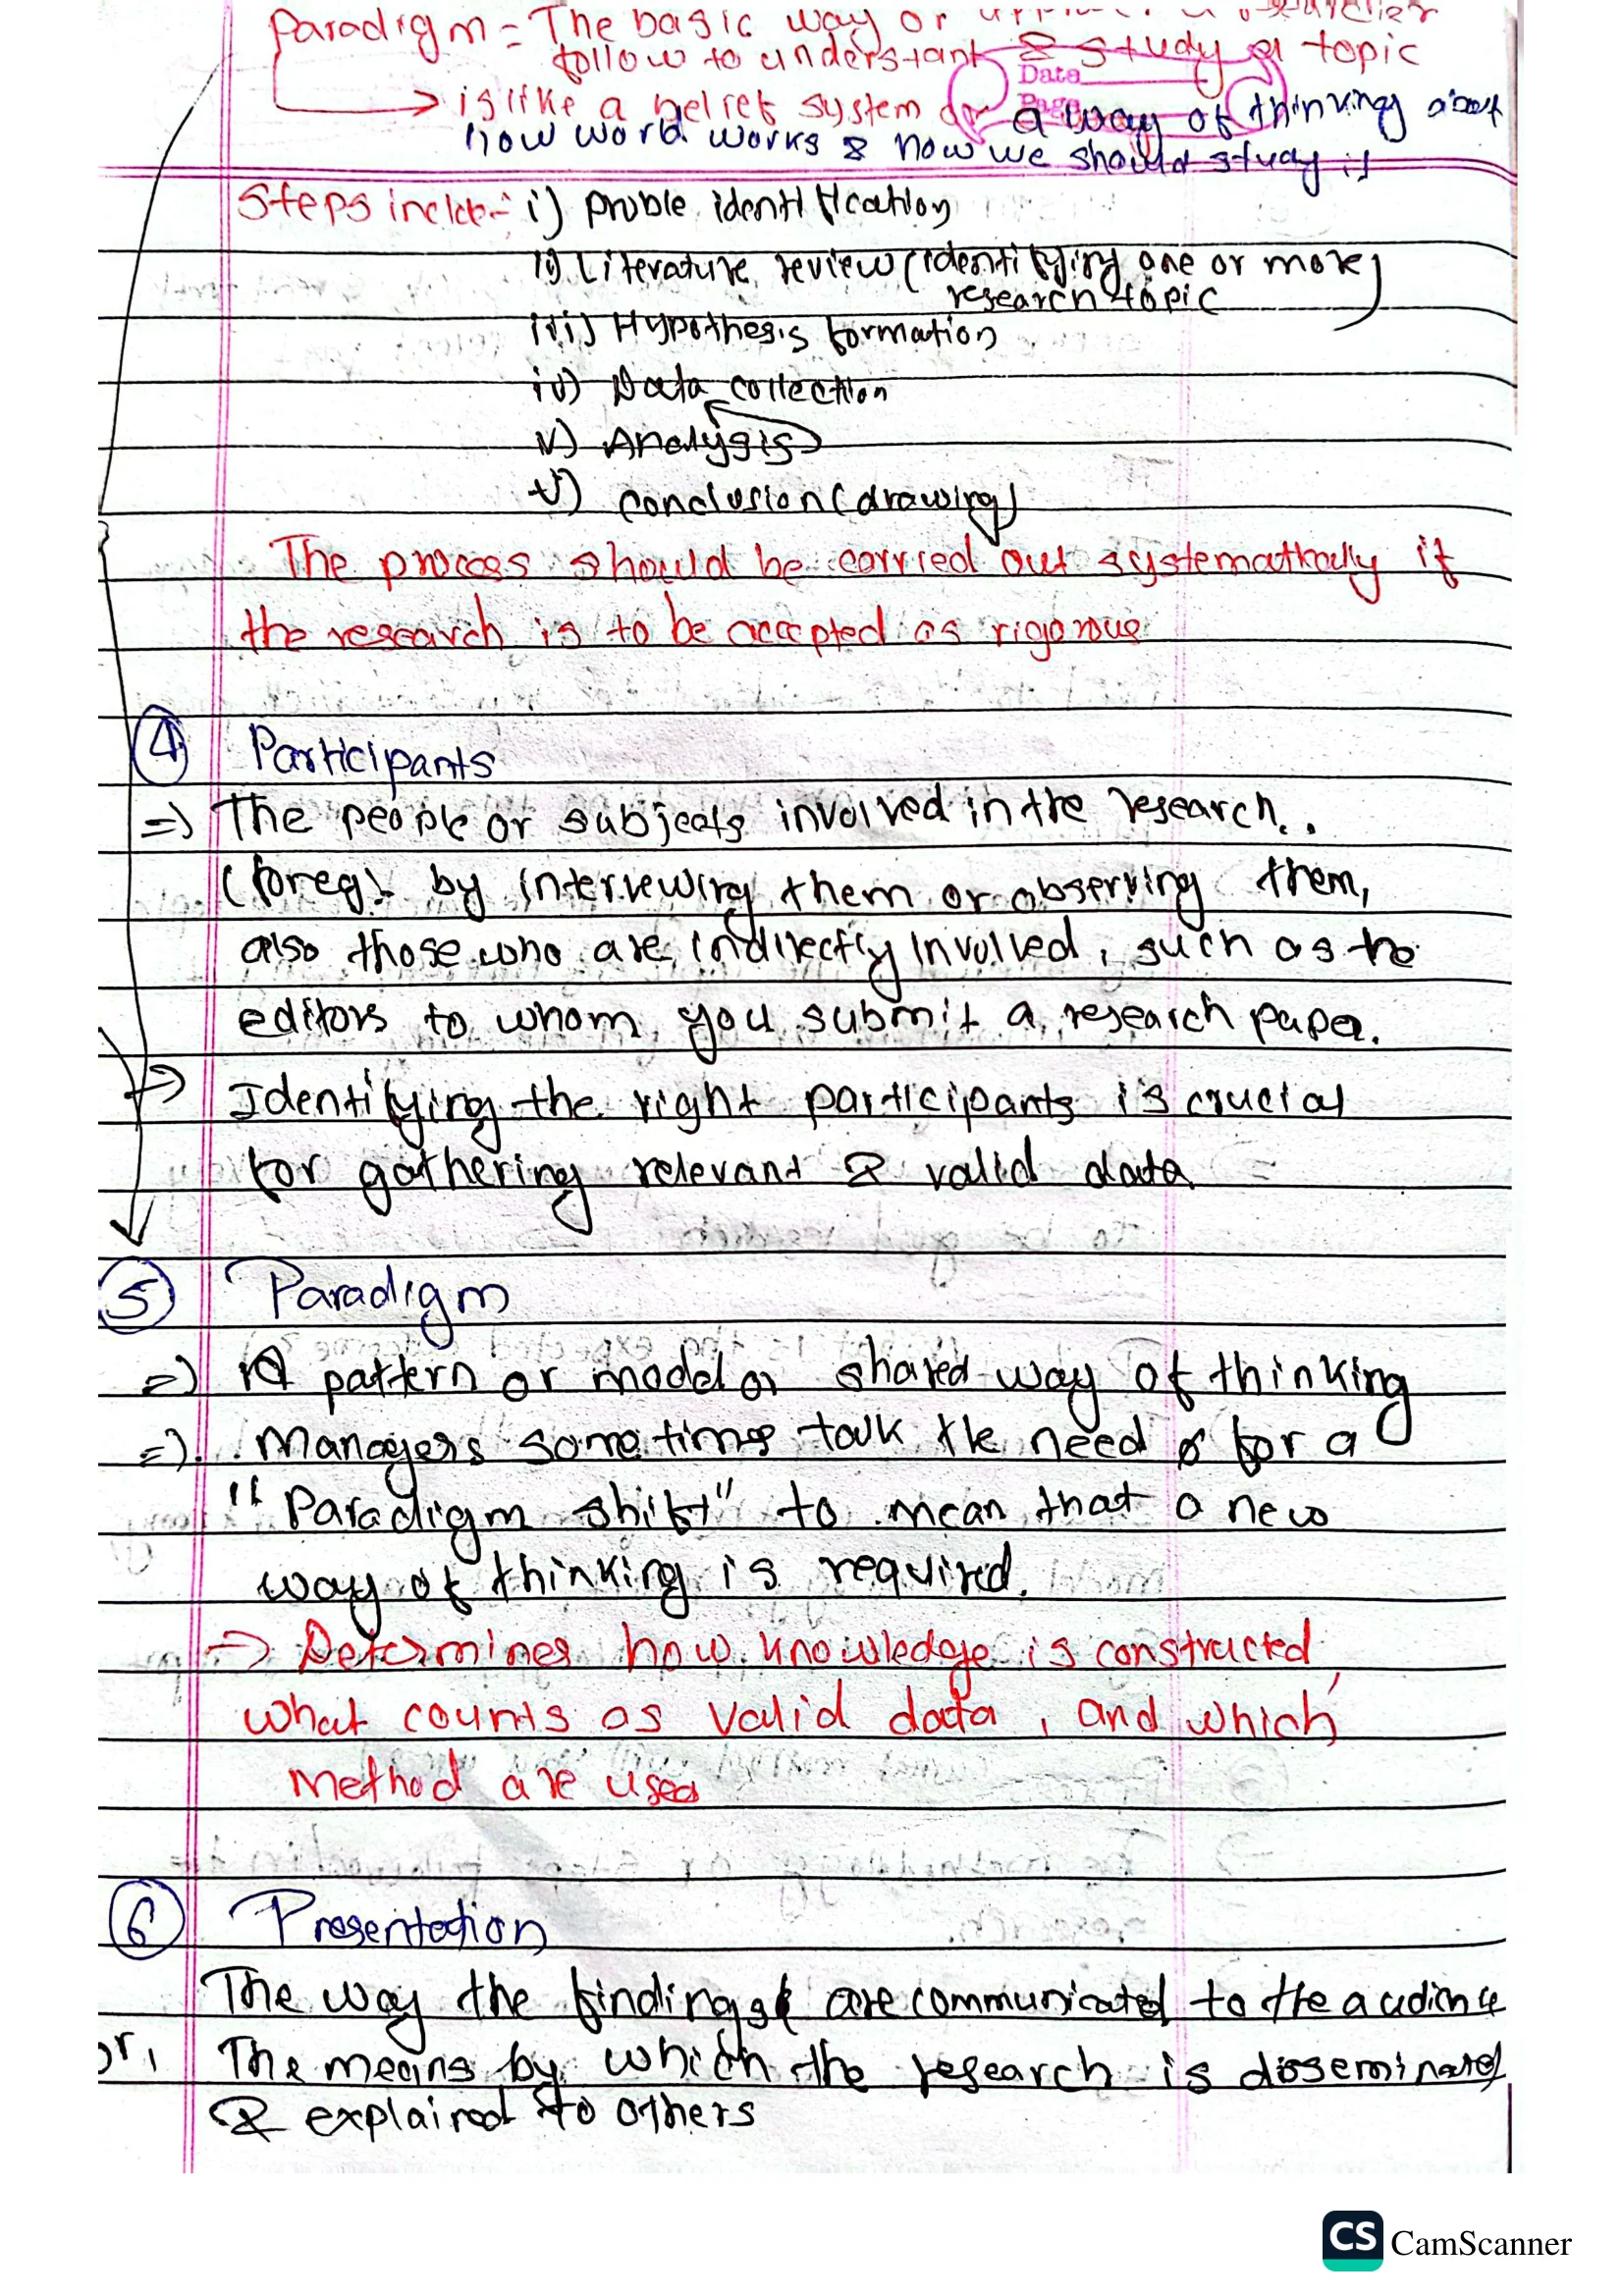 Paradigm = The basic way or
follow to understant & study a topic
Date
Page
→ is like a belief system or a way of thinking about
how world works & how we should study it
Steps include:- i) proble identification
ii) Literature review (identifying one or more
research topic)
iii) Hypothesis formation
iv) Data collection
v) Analysis
v) conclusion (drawing)
The process should be carried out systematically if
the research is to be accepted as rigorous
④ Participants
=> The people or subjects involved in the research..
(for eg: by interviewing them or observing them,
also those who are indirectly involved, such as the
editors to whom you submit a research paper.
=> Identifying the right participants is crucial
for gathering relevant & valid data
⑤ Paradigm
=> A pattern or model or shared way of thinking
=> Managers sometimes talk the need for a
"Paradigm shift" to mean that a new
way of thinking is required.
→ Determines how knowledge is constructed,
what counts as valid data, and which
method are used
⑥ Presentation
The way the findings are communicated to the audience
or, The means by which the research is disseminated
& explained to others
CS CamScanner